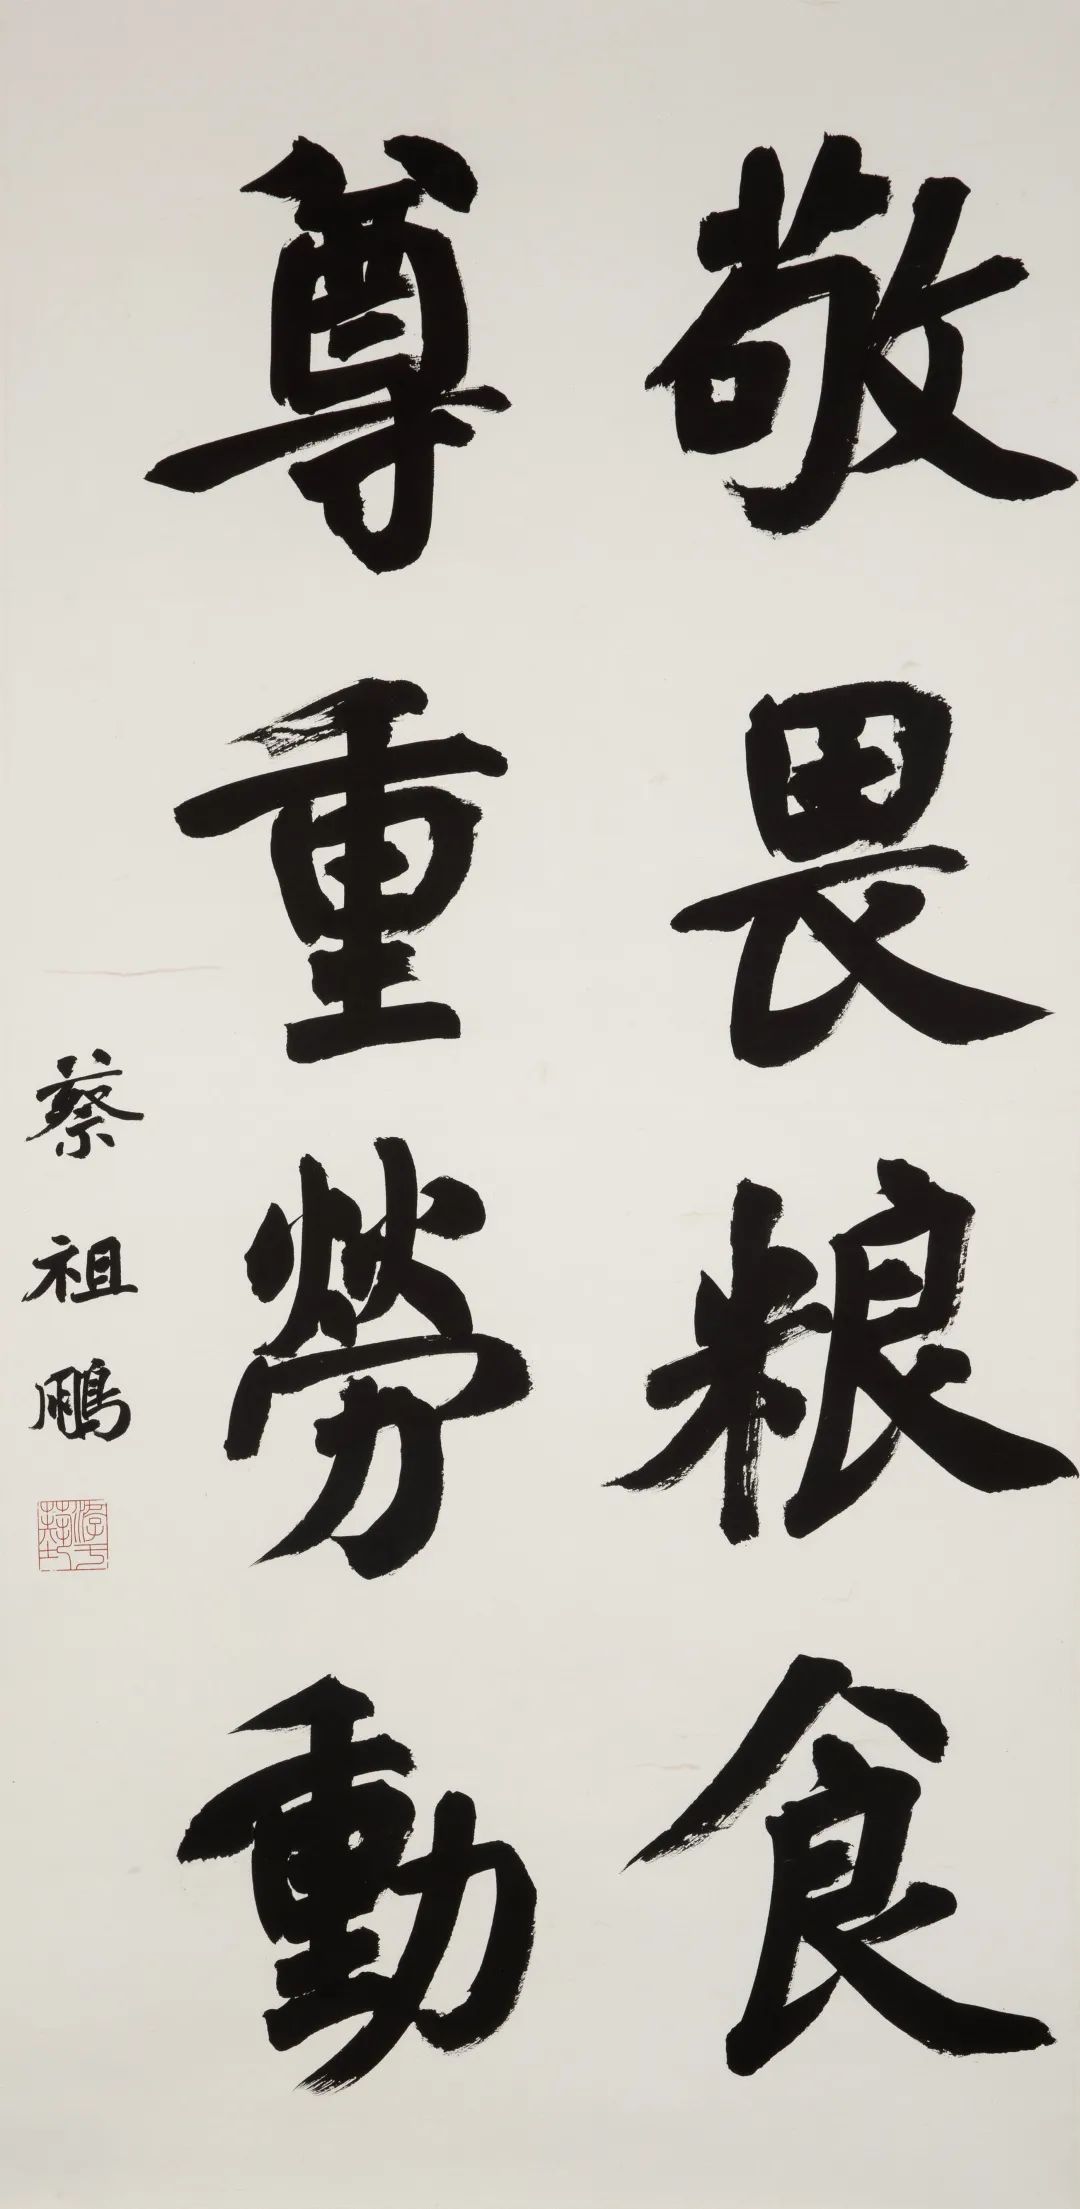 敬畏粮食
尊重勞動
蔡祖鵬